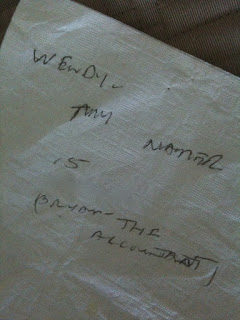 WENDY -
MY
NUMBER
IS
(BRYAN - THE
ACCOUNTANT)